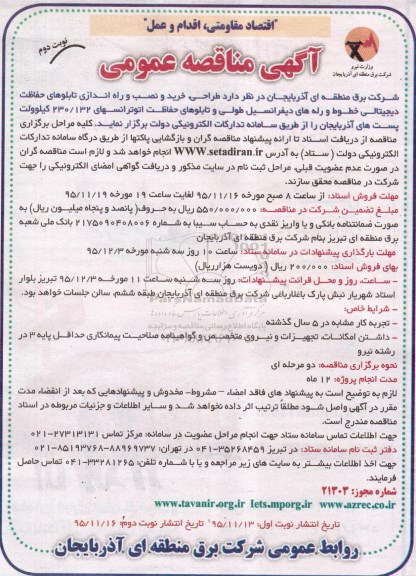 "اقتصاد مقاومتی، اقدام و عمل"
نوبت دوم
آگهی مناقصه عمومی
وزارت نیرو
شرکت برق منطقه ای آذربایجان
شرکت برق منطقه ای آذربایجان در نظر دارد طراحی، خرید و نصب و راه اندازی تابلوهای حفاظت
دیجیتالی خطوط و رله های دیفرانسیل طولی و تابلوهای حفاظت اتوترانسهای ۲۳۰/۱۳۲ کیلوولت
پست های آذربایجان را از طریق سامانه تدارکات الکترونیکی دولت برگزار نمایید. کلیه مراحل برگزاری
مناقصه از دریافت اسناد تا ارائه پیشنهاد مناقصه گران و بازگشایی پاکتها از طریق درگاه سامانه تدارکات
الکترونیکی دولت (ستاد) به آدرس WWW.setadiran.ir انجام خواهد شد و لازم است مناقصه گران
در صورت عدم عضویت قبلی، مراحل ثبت نام در سایت مذکور و دریافت گواهی امضای الکترونیکی را جهت
شرکت در مناقصه محقق سازند.
مهلت فروش اسناد: از ساعت ۸ صبح مورخه ۹۵/۱۱/۱۶ لغایت ساعت ۱۹ مورخه ۹۵/۱۱/۱۹
مبلغ تضمین شرکت در مناقصه: ۵۵۰/۰۰۰/۰۰۰ ریال به حروف( پانصد و پنجاه میلیون ریال) به
صورت ضمانتنامه بانکی و یا واریز نقدی به حساب سیبا به شماره ۲۱۷۵۰۹۰۴۰۸۰۰۶ بانک ملی شعبه
برق منطقه ای تبریز بنام شرکت برق منطقه ای آذربایجان
مهلت بارگذاری پیشنهادات در سامانه ستاد: ساعت ۱۰ روز سه شنبه مورخه ۹۵/۱۲/۳
بهای فروش اسناد: ۲۰۰/۰۰۰ ریال ( دویست هزارریال)
- ساعت، روز و محل قرائت پیشنهادات: روز سه شنبه ساعت ۱۱ مورخه ۹۵/۱۲/۳ تبریز بلوار
استاد شهریار نبش پارک باغلارباغی شرکت برق منطقه ای آذربایجان طبقه ششم، سالن جلسات خواهد بود.
- شرایط خاص:
- تجربه کار مشابه در ۵ سال گذشته
- داشتن امکانات، تجهیزات و نیروی متخصص و گواهینامه صلاحیت پیمانکاری حداقل پایه ۳ در
رشته نیرو
نحوه برگزاری مناقصه: دو مرحله ای
مدت انجام پروژه: ۱۲ ماه
لازم به توضیح است به پیشنهاد های فاقد امضاء - مشروط- مخدوش و پیشنهادهایی که بعد از انقضاء مدت
مقرر در آگهی واصل شود مطلقاً ترتیب اثر داده نخواهد شد و سایر اطلاعات و جزئیات مربوطه در اسناد
مناقصه مندرج است.
جهت اطلاعات تماس سامانه ستاد جهت انجام مراحل عضویت در سامانه: مرکز تماس ۲۷۳۱۳۱۳۱-۰۲۱
دفتر ثبت نام سامانه ستاد: در تبریز ۳۵۲۶۸۴۵۹-۰۴۱ در تهران: ۸۸۹۶۹۷۳۷-۸۵۱۹۳۷۶۸-۰۲۱
جهت اخذ اطلاعات بیشتر به سایت های زیر مراجعه و یا با شماره تلفن: ۳۳۲۸۱۲۶۵-۰۴۱ تماس حاصل
فرمایند.
شماره مجوز: ۲۱۳۰۳
www.tavanir.org.ir Iets.mporg.ir www.azrec.co.ir
تاریخ انتشار نوبت اول: ۹۵/۱۱/۱۳ تاریخ انتشار نوبت دوم: ۹۵/۱۱/۱۶
روابط عمومی شرکت برق منطقه ای آذربایجان